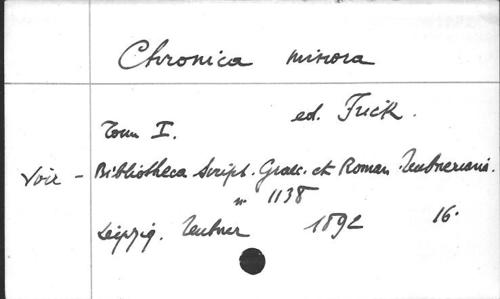 Chronica minora
ed. Frick.
Tom I.
Voir - Bibliotheca Script. Graec. et Roman. Teubneriana.
n° 1138
Leipzig. Teubner 1892 16.